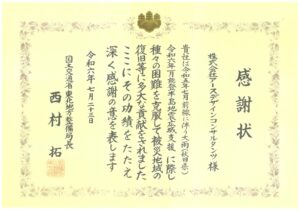 感謝状
株式会社アースデザインコンサルタンツ 様
貴社は令和五年七月前線に伴う大雨(秋田県)
令和六年一月能登半島地震広域支援に際し
種々の困難を克服して被災地域の
復旧等に多大な貢献をされました
ここにその功績をたたえ
深く感謝の意を表します
令和六年七月二十三日
国土交通省東北地方整備局長
西村 拓